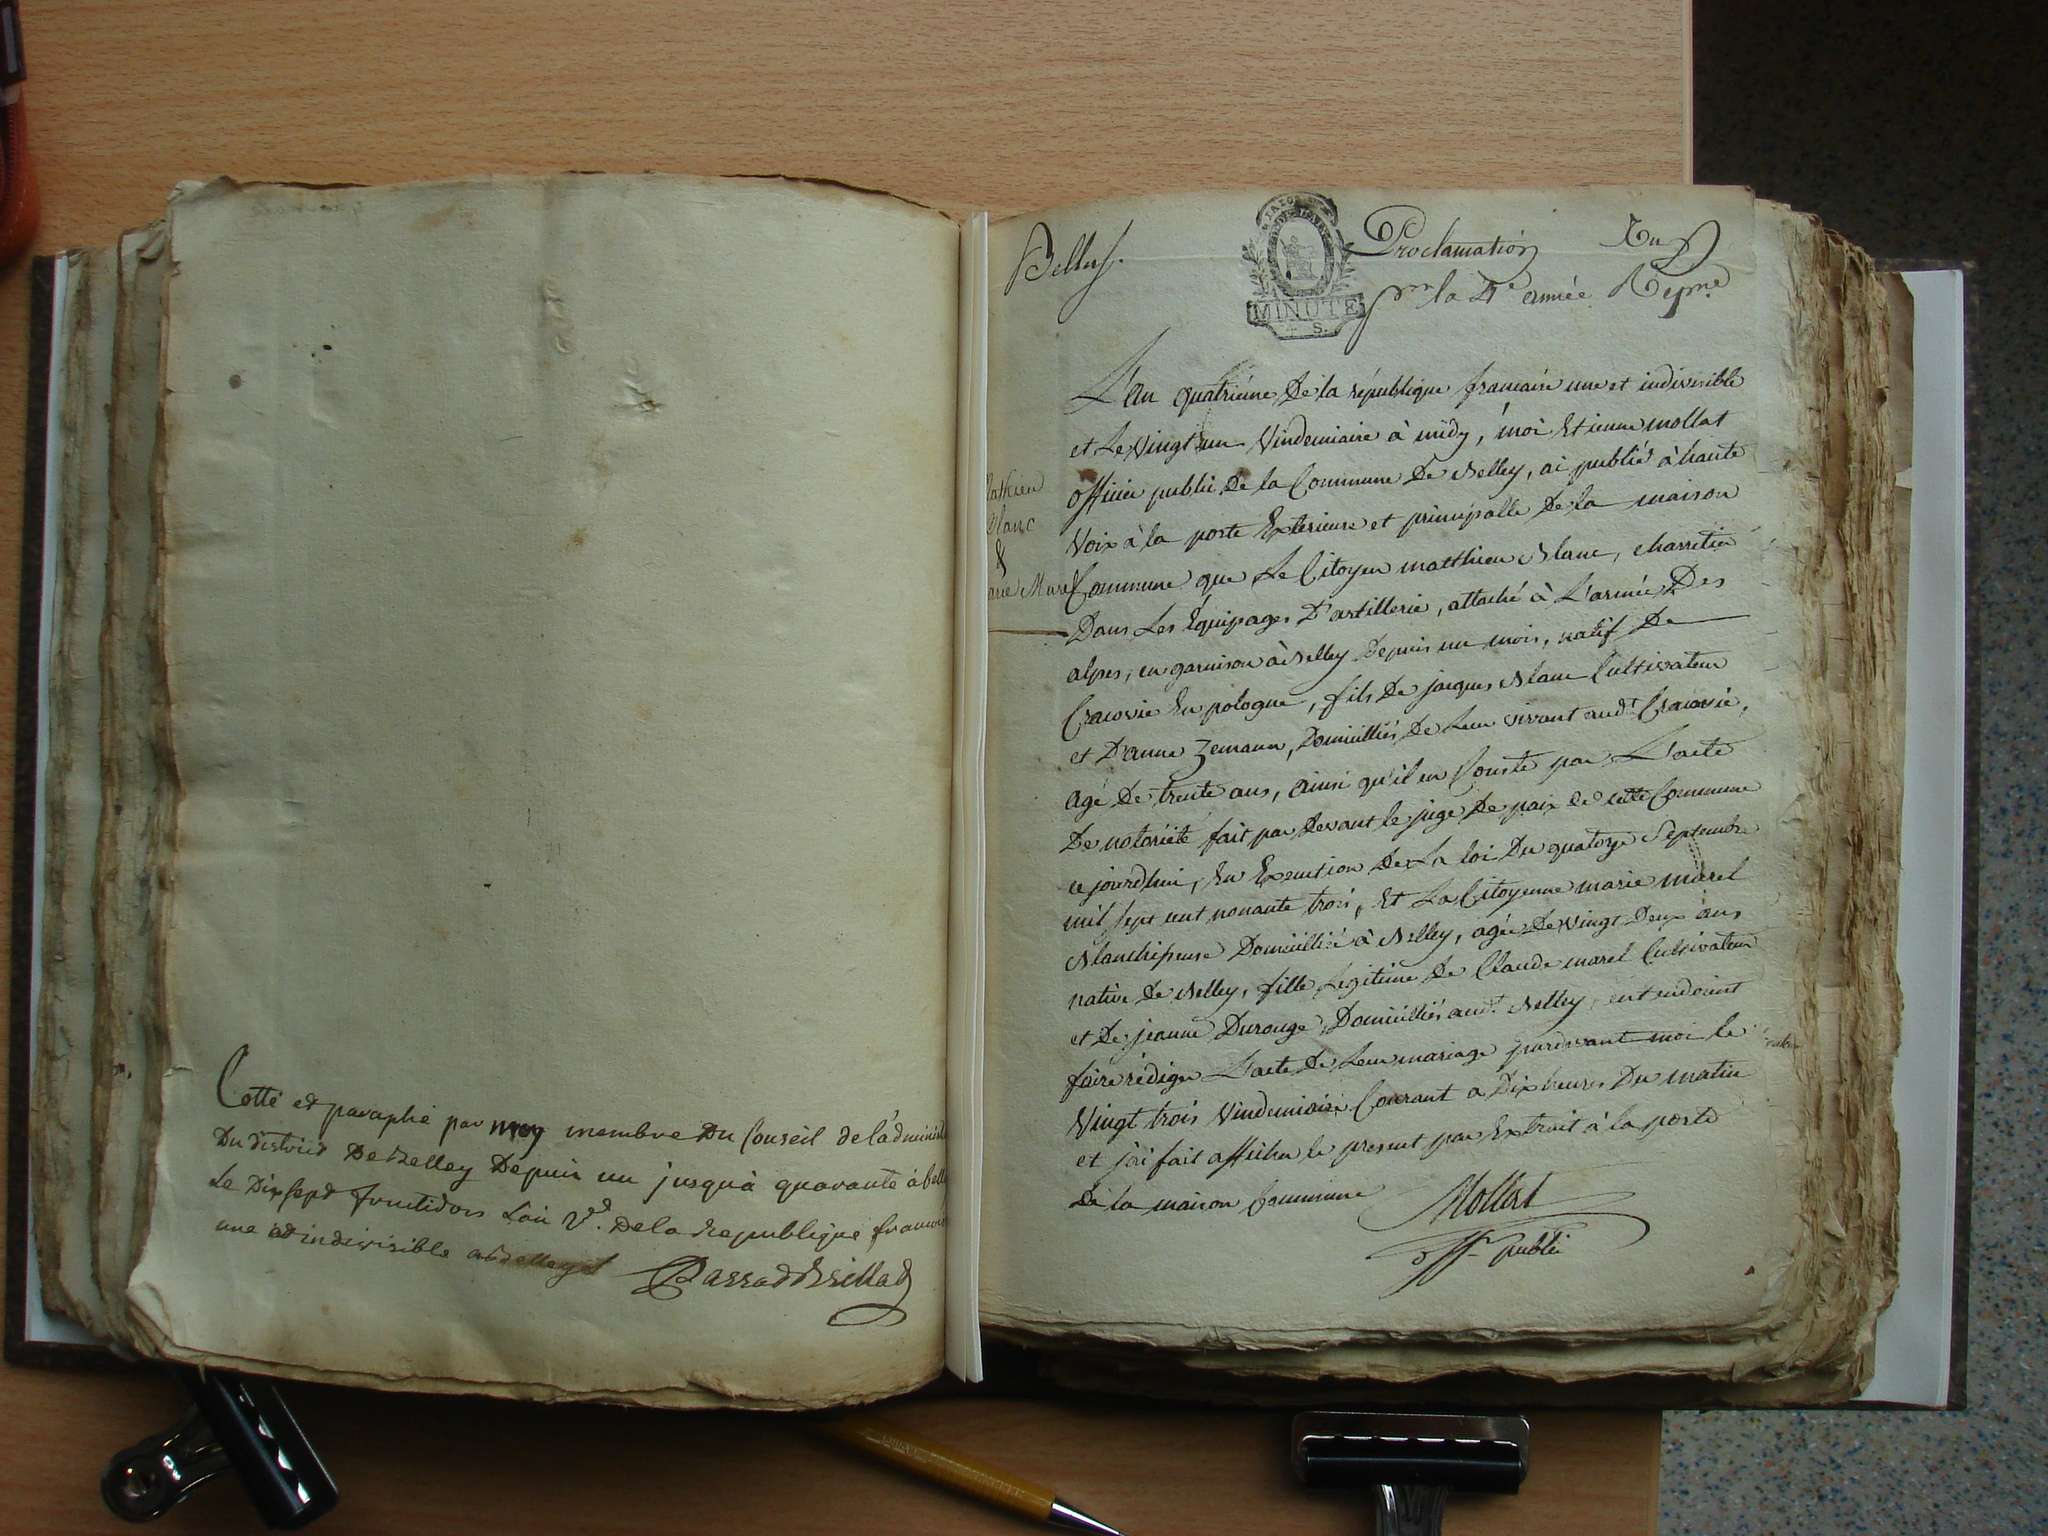 Cotté et paraphé par moy membre Du Conseil de l'administ
Du district De Belley Depuis un jusqu'à quarante à bell
Le Dixsept fructidor L'an De la Republique francois
une et indivisible a Belley
Passod Brillat
Belley
MINUTE
4 S.
Proclamation
pour la 4e année
Mathieu
Blanc
&
Marie Marel
L'an quatriéme De la république francaise une et indivisible
et Le Vingt un Vindemiaire à midy, moi Etienne mollat
officier public De la Commune De Belley, ai publié à haute
Voix à la porte Exterieure et principalle De la maison
Commune que Le Citoyen matthieu Blanc, charretier
Dans Les Equipages D'artillerie, attaché à L'armée Des
alpes, en garnison à Belley Depuis un mois, natif De
Cracovie En pologne, fils De jacques Blanc Cultivateur
et D'anne Zemann, Domicilliés De Leur vivant audt Cracovie,
agé De trente ans, ainsi qu'il en Conste par L'acte
De notoriété fait par Devant le juge De paix de cette Commune
ce jourdhui, En Execution De La loi Du quatorze Septembre
mil sept cent nonante trois, Et La Citoyenne marie marel
Blanchisseuse Domicilliée à Belley, agée De Vingt Deux ans
native De Belley, fille Legitime De Claude marel Cultivateur
et De jeanne Durouge Domicilliés audt Belley, entendoient
faire rédiger L'acte De Leur mariage pardevant moi le
Vingt trois Vindemiaire Courant a Dix heures Du matin
et j'ai fait afficher le present par Extrait à la porte
De la maison Commune
Mollat
offr public